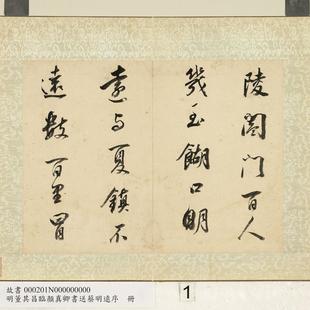 陵闔門百人
幾至餬口明
遠與夏鎮不
遠數百里冒
故書 000201N000000000
明董其昌臨顏真卿書送蔡明遠序　冊
1